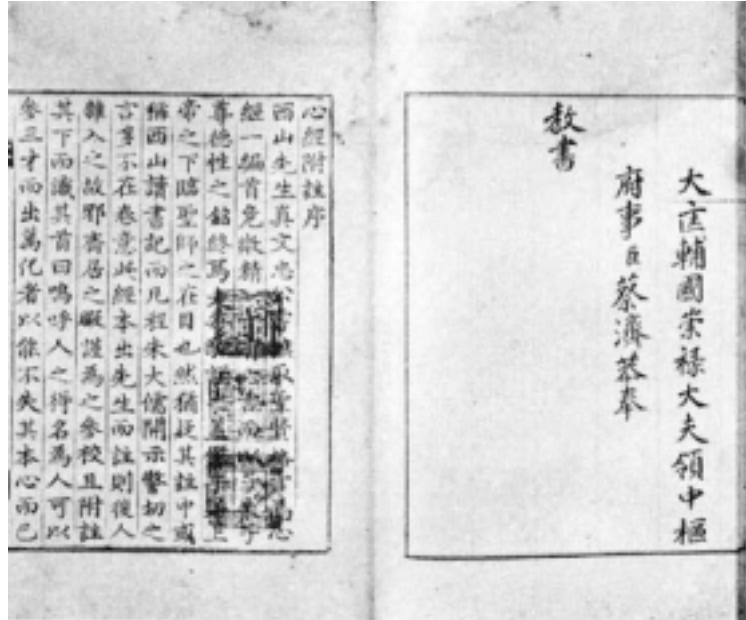 大匡輔國崇祿大夫領中樞
府事臣蔡濟恭奉
教書
心經附註序
西山先生真文忠公嘗摭取聖賢格言為心
經一編首危微精言而以子朱子
尊德性之銘終焉蓋上
帝之下臨聖師之在目也然猶疑其註中或
稱西山讀書記而凡程朱大儒開示警切之
言多不在卷意此經本出先生而註則後人
雜入之故邪齋居之暇謹為之參校且附註
其下而識其首曰嗚呼人之得名為人可以
參三才而出萬化者以能不失其本心而已